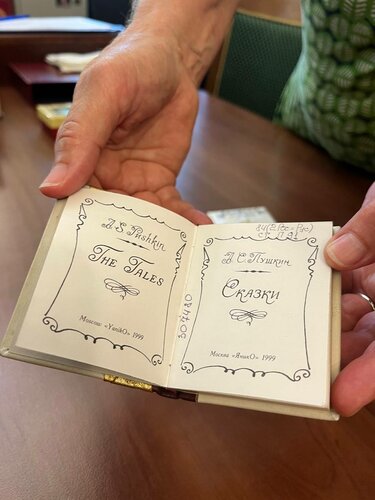 A. S. Pushkin
THE TALES
Moscow «YanikO» 1999
307420
84(2Рос-Рус)
А. С. Пушкин
СКАЗКИ
Москва «ЯникО» 1999